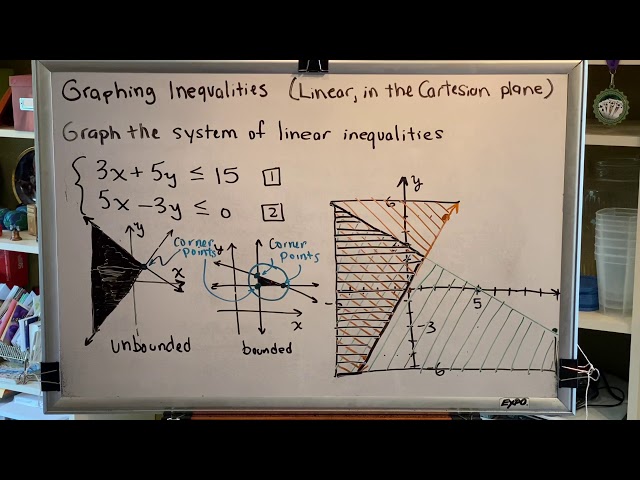 Graphing Inequalities (Linear, in the Cartesian plane)
Graph the system of linear inequalities
3x + 5y ≤ 15 1
5x - 3y ≤ 0 2
y
x
corner points
unbounded
y
x
Corner points
bounded
y
6
5
-3
-6
EXPO